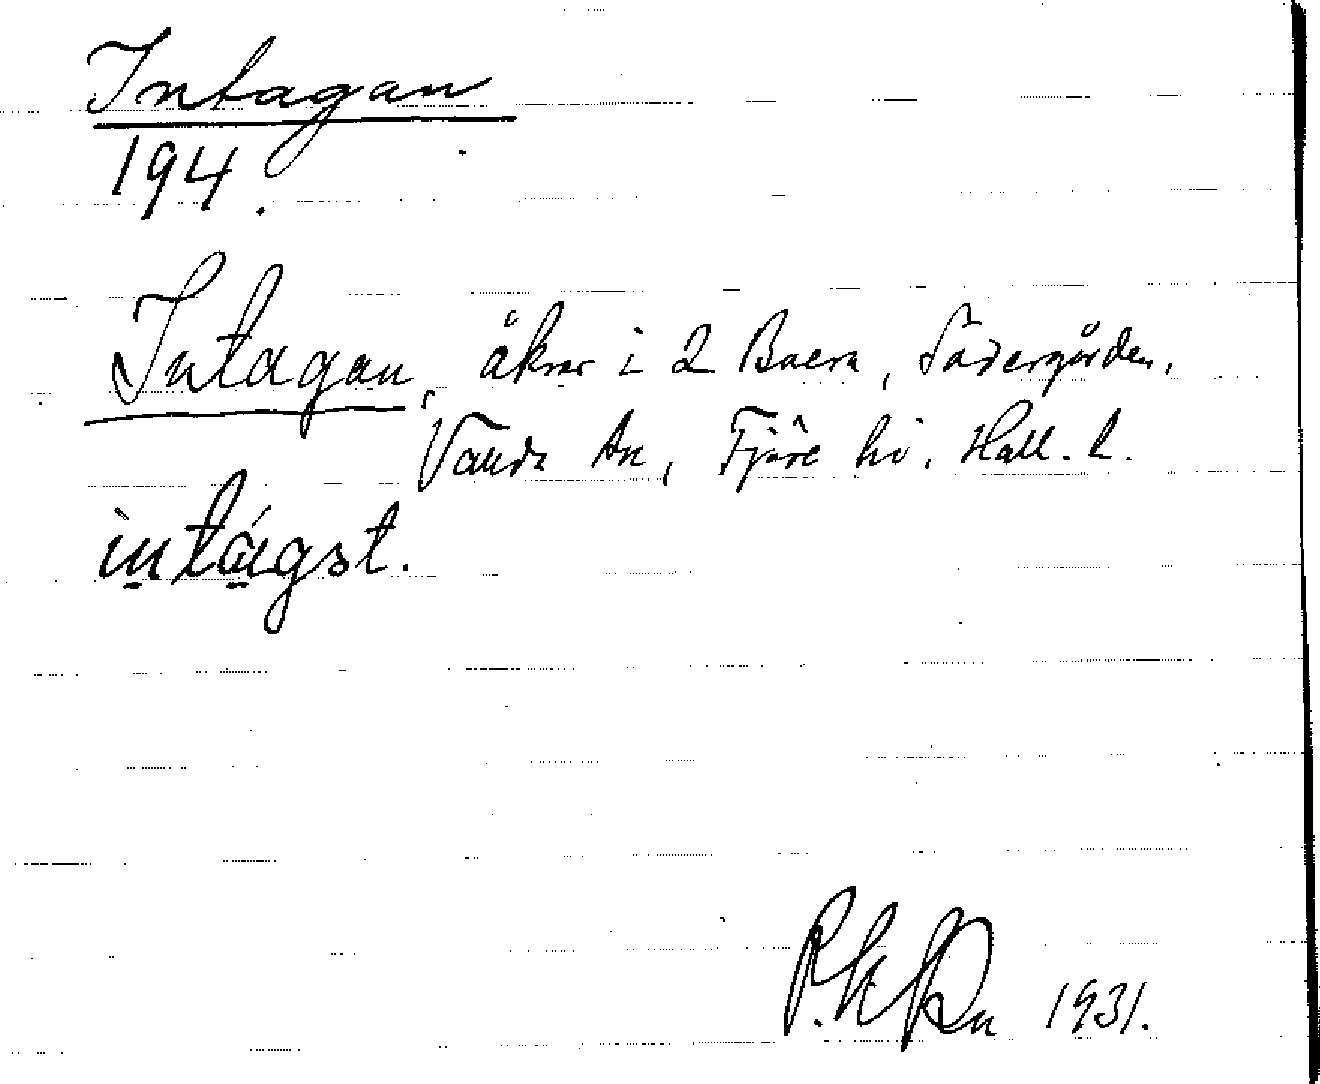 Intagan
194.
Intagan, åkrar i 2 Backa, Södergården,
Vanda sn, Fjäre hd. Hall. l.
intágst.
1931.